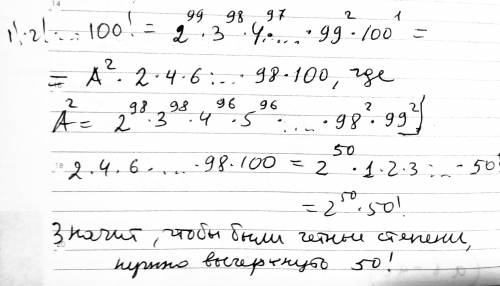 1!·2!·...·100! = 2^99·3^98·4^97·...·99^2·100^1 =
= A^2·2·4·6·...·98·100, где
A^2 = 2^98·3^98·4^96·5^96·...·98^2·99^2
2·4·6·...·98·100 = 2^50·1·2·3·...·50!
= 2^50·50!
Значит, чтобы были четные степени,
нужно вычеркнуть 50!